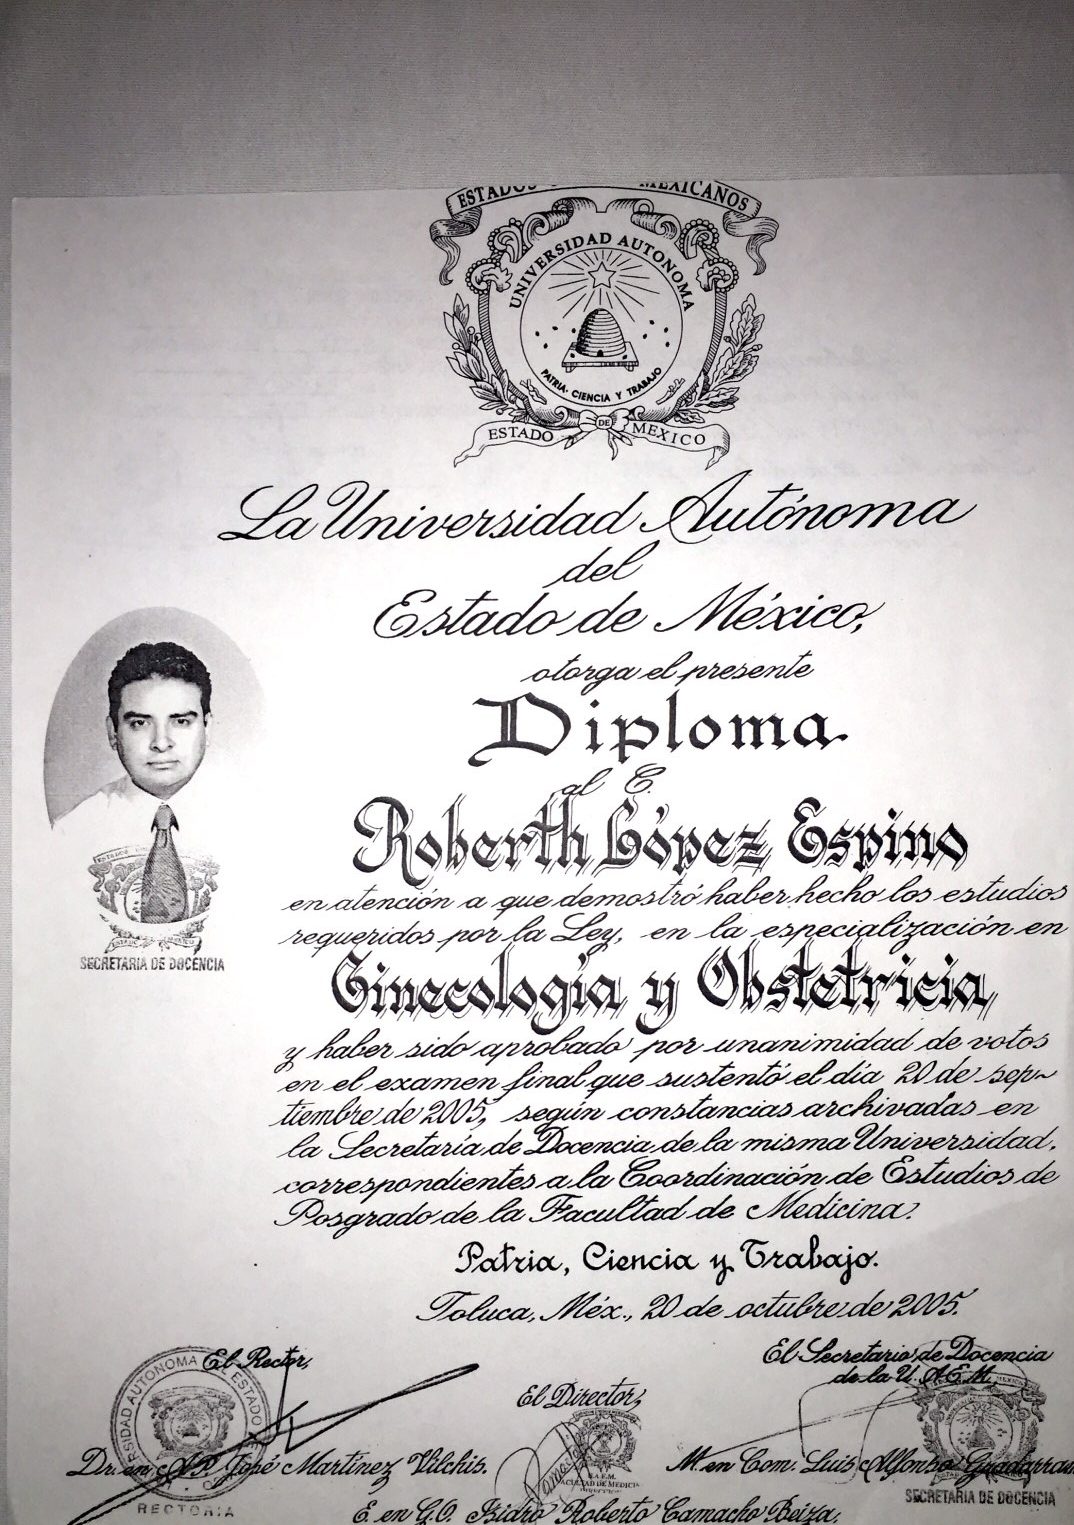 ESTADOS MEXICANOS
UNIVERSIDAD AUTONOMA
PATRIA·CIENCIA Y TRABAJO
ESTADO DE MEXICO
La Universidad Autónoma
del
Estado de México,
otorga el presente
Diploma
al C.
Roberth López Espino
en atención a que demostró haber hecho los estudios
requeridos por la Ley, en la especialización en
Ginecología y Obstetricia
y haber sido aprobado por unanimidad de votos
en el examen final que sustentó el día 20 de sep-
tiembre de 2005, según constancias archivadas en
la Secretaría de Docencia de la misma Universidad,
correspondientes a la Coordinación de Estudios de
Posgrado de la Facultad de Medicina.
Patria, Ciencia y Trabajo.
Toluca, Méx., 20 de octubre de 2005.
SECRETARIA DE DOCENCIA
El Rector,
Dr. en A.P. José Martínez Vilchis.
RECTORIA
El Director,
E. en G.O. Isidro Roberto Camacho Beiza.
El Secretario de Docencia
de la U.A.E.M.
M. en Com. Luis Alfonso Guadarrama
SECRETARIA DE DOCENCIA